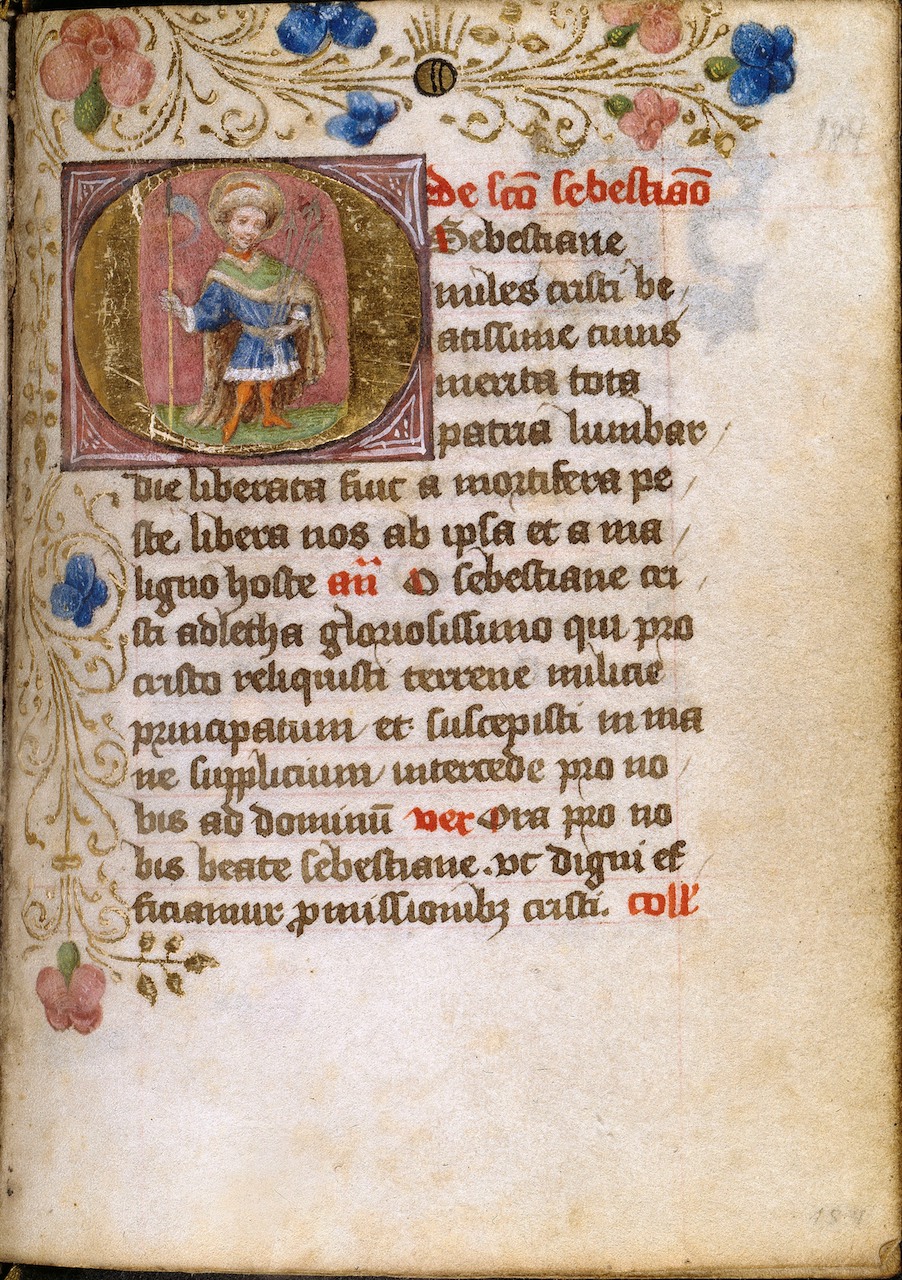 184
De sc̄o sebestiaō
O Sebestiane
miles cristi be
atissime cuius
merita tota
patria lumbar
die liberata fuit a mortifera pe
ste libera nos ab ipsa et a ma
ligno hoste an̄ O sebestiane cri
sti adletha gloriosissimo qui pro
cristo reliquisti terrene milicie
principatum et suscepisti in ma
ne supplicium intercede pro no
bis ad dominū ver Ora pro no
bis beate sebestiane. vt digni ef
ficiamur ꝓmissionibꝫ cristi. coll'
184